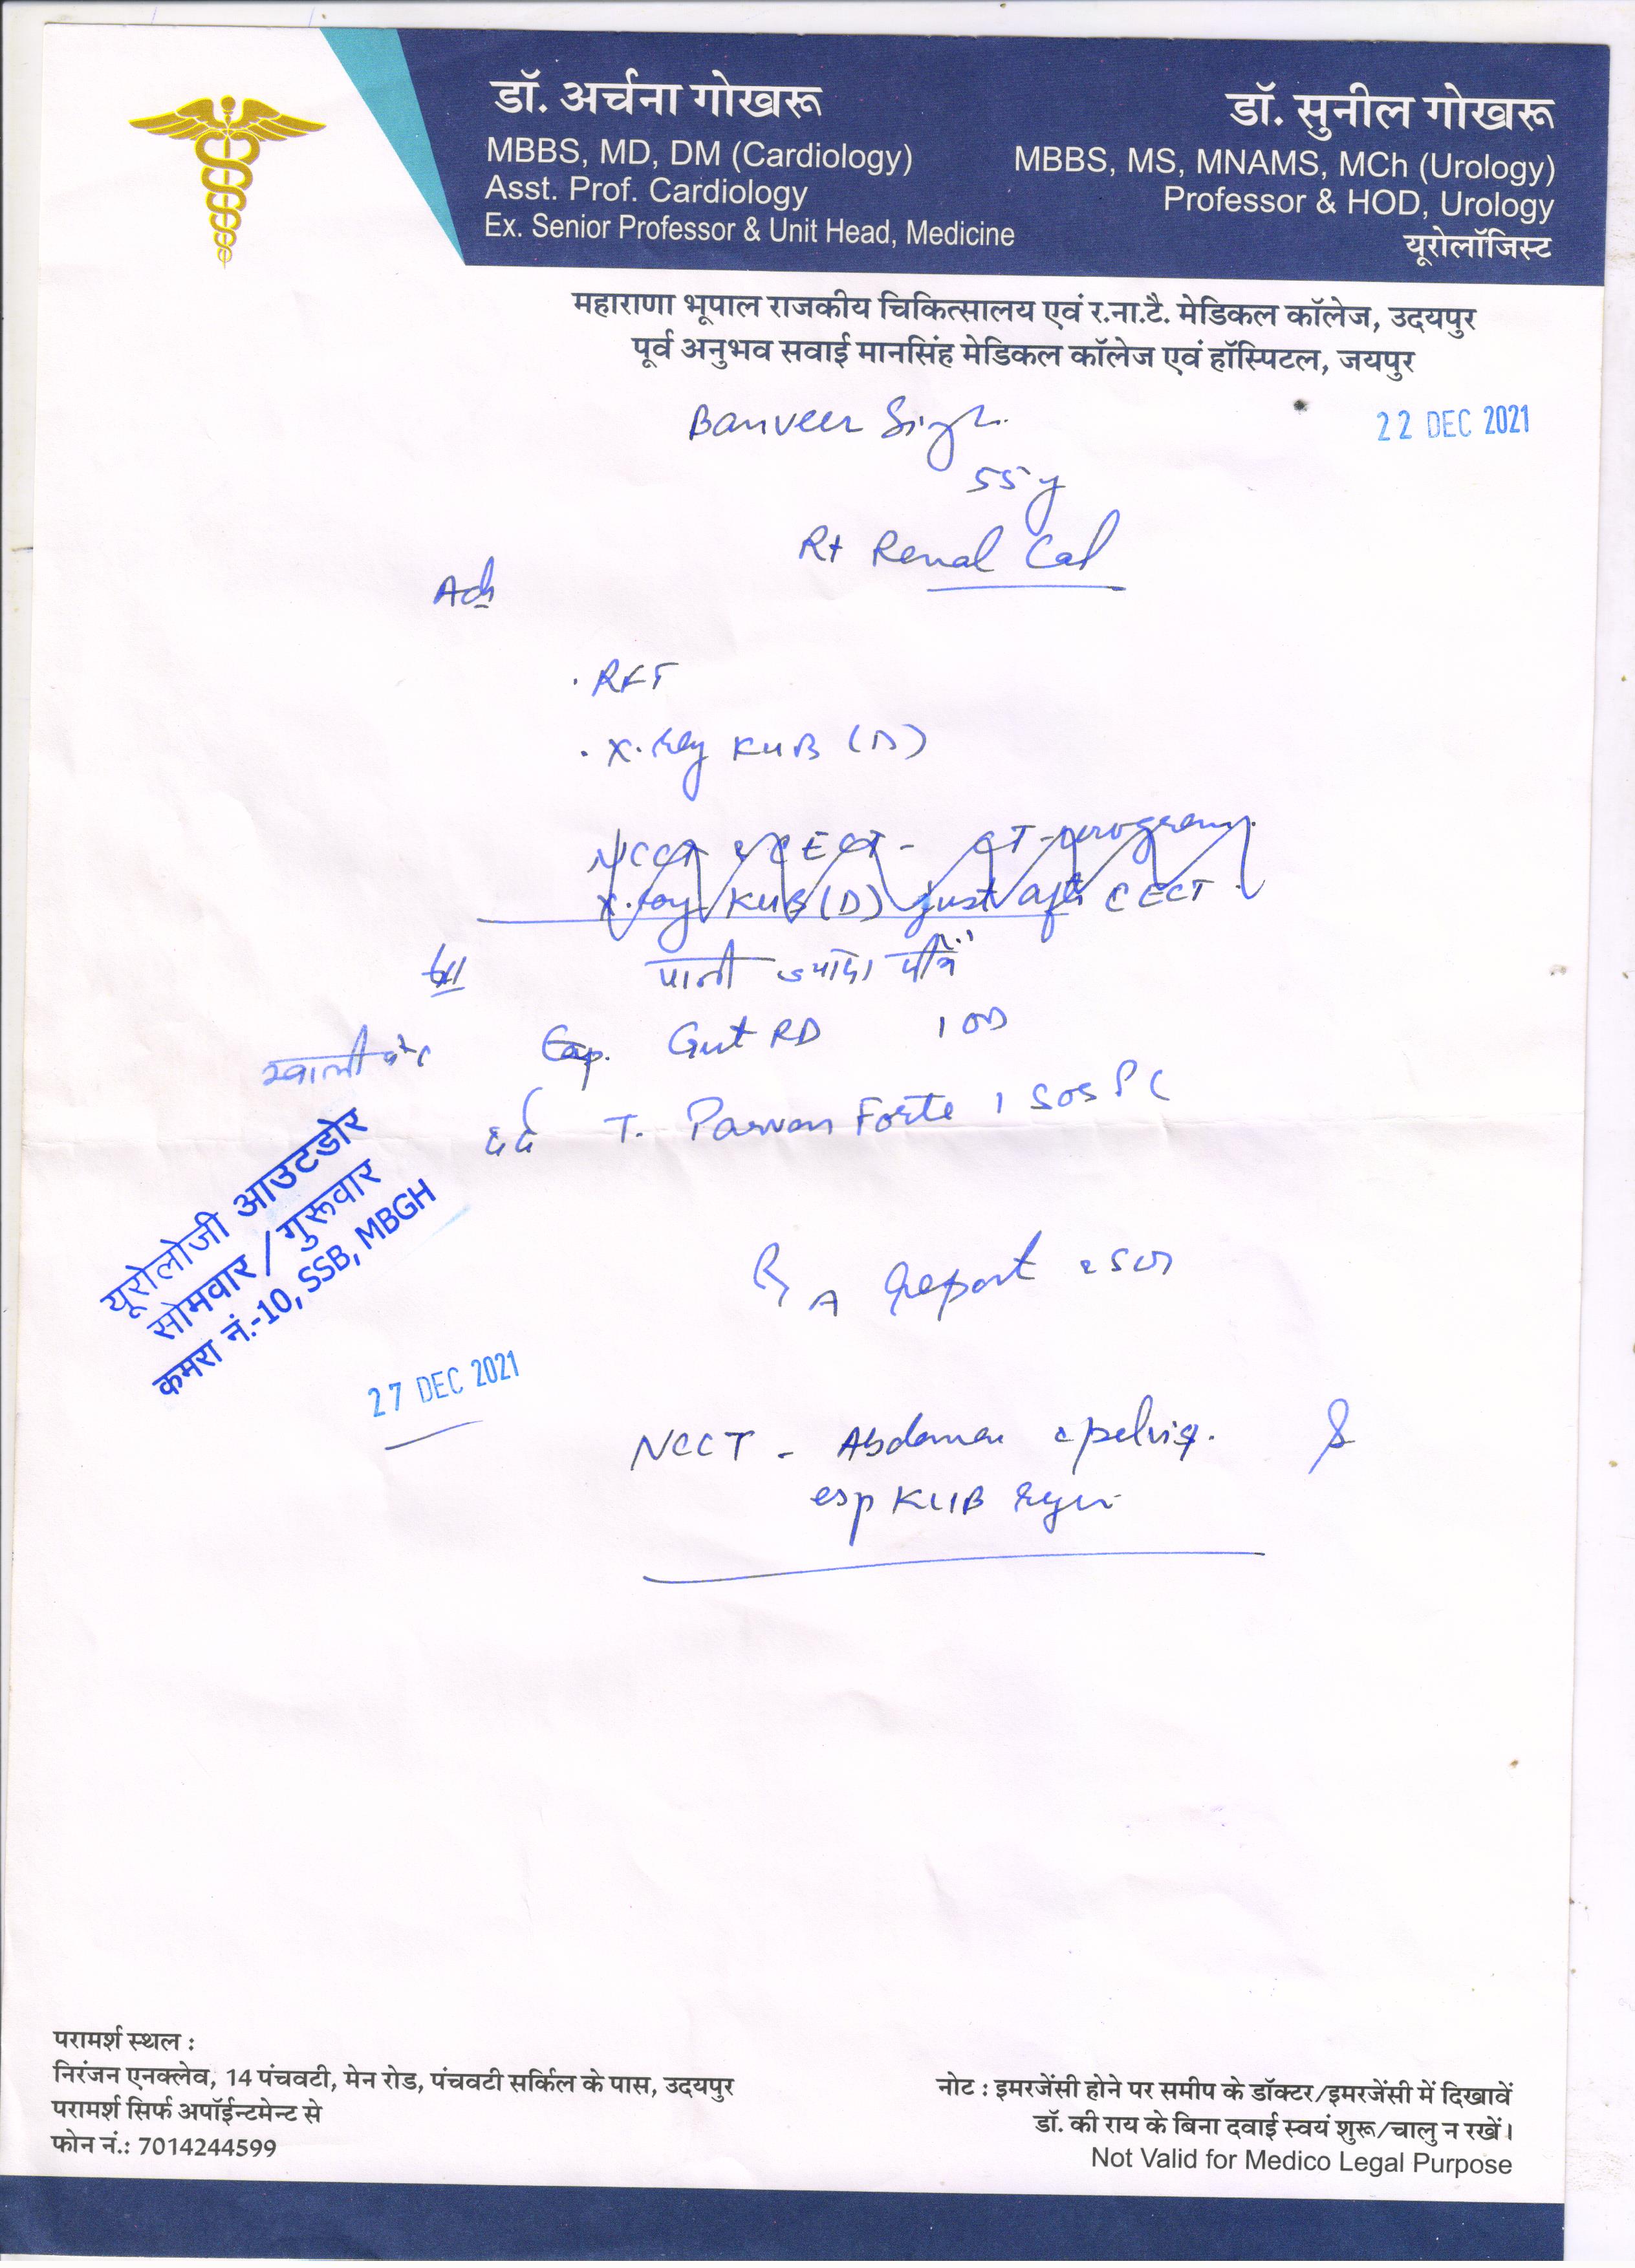 डॉ. अर्चना गोखरू
MBBS, MD, DM (Cardiology)
Asst. Prof. Cardiology
Ex. Senior Professor & Unit Head, Medicine
डॉ. सुनील गोखरू
MBBS, MS, MNAMS, MCh (Urology)
Professor & HOD, Urology
यूरोलॉजिस्ट
महाराणा भूपाल राजकीय चिकित्सालय एवं र.ना.टै. मेडिकल कॉलेज, उदयपुर
पूर्व अनुभव सवाई मानसिंह मेडिकल कॉलेज एवं हॉस्पिटल, जयपुर
22 DEC 2021
Banveer Singh
55 y
Rt Renal Cal
Adv
. RFT
. X. Ray KUB (D)
NCCT & CECT - CT-urogram
X. Ray KUB (D) just after CECT.
पानी ज्यादा पीये
खाली पेट Cap. Gut RD 1 OD
दर्द T. Parvon Forte 1 SOS PC
यूरोलोजी आउटडोर
सोमवार / गुरूवार
कमरा नं.-10, SSB, MBGH
R A Report
27 DEC 2021
NCCT - Abdomen pelvis.
esp KUB
परामर्श स्थल :
निरंजन एनक्लेव, 14 पंचवटी, मेन रोड, पंचवटी सर्किल के पास, उदयपुर
परामर्श सिर्फ अपॉईन्टमेन्ट से
फोन नं.: 7014244599
नोट : इमरजेंसी होने पर समीप के डॉक्टर/इमरजेंसी में दिखावें
डॉ. की राय के बिना दवाई स्वयं शुरू/चालु न रखें।
Not Valid for Medico Legal Purpose